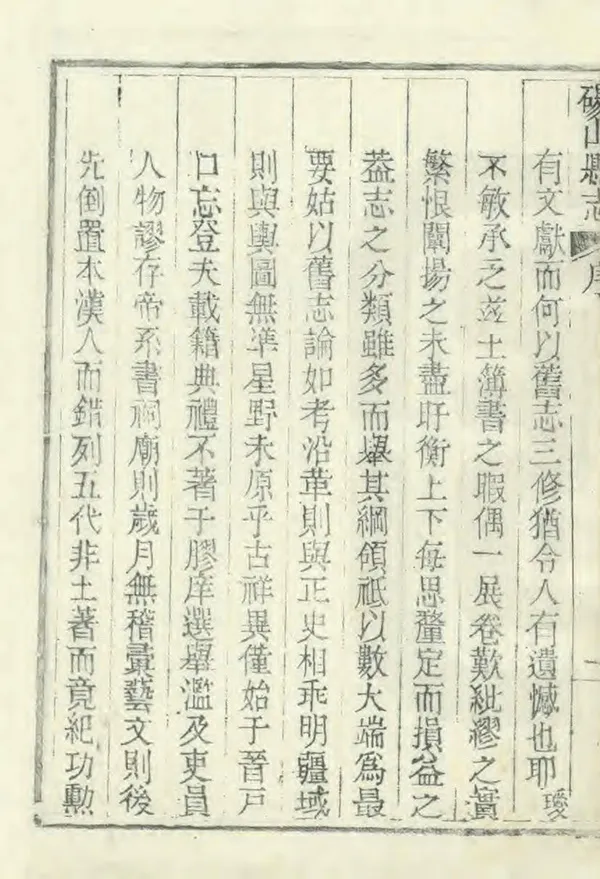 碭山縣志
序
一
有文獻而何以舊志三修猶令人有遺憾也耶瑷
不敏承乏茲土簿書之暇偶一展卷歎紕繆之實
繁恨闡揚之未盡盱衡上下每思釐定而損益之
葢志之分類雖多而舉其綱領祗以數大端爲最
要姑以舊志論如考沿革則與正史相乖明疆域
則與輿圖無準星野未原乎古祥異僅始于晉戸
口忘登夫載籍典禮不著于膠庠選舉濫及吏員
人物謬存帝系書祠廟則歲月無稽彙藝文則後
先倒置本漢人而錯列五代非土著而竟紀功勲